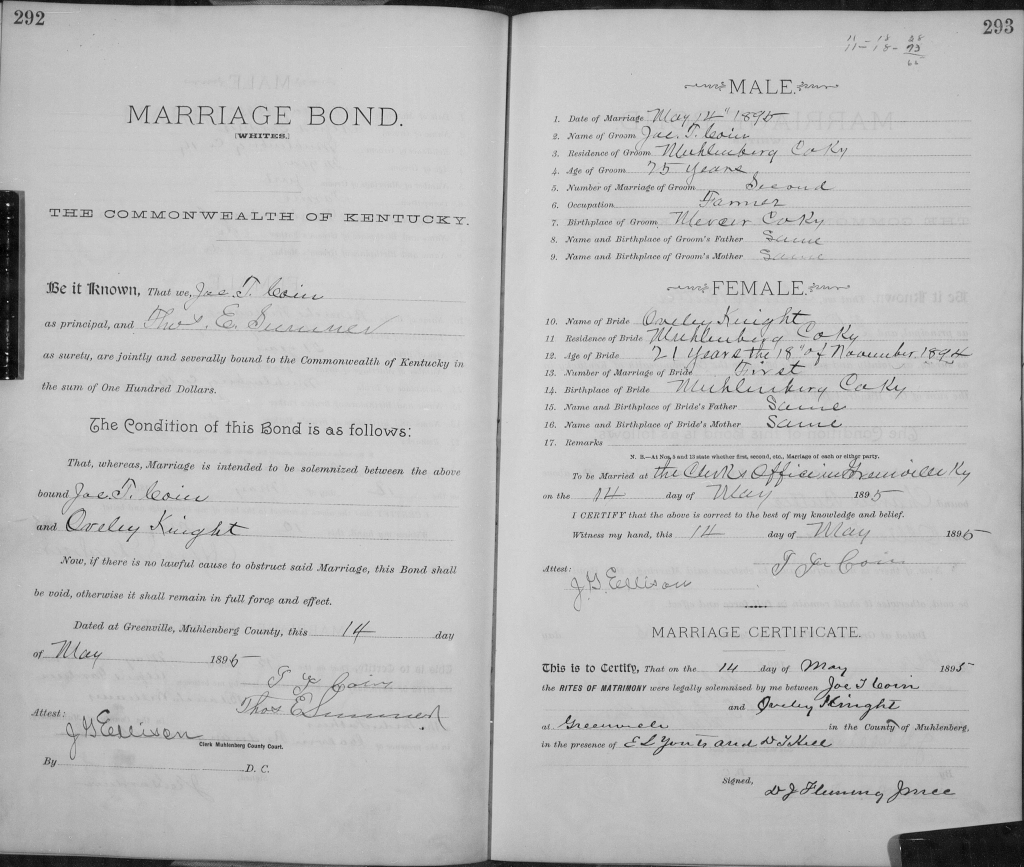 292
MARRIAGE BOND.
[WHITES.]
THE COMMONWEALTH OF KENTUCKY.
Be it Known, That we, Joe. T. Coin
as principal, and Thos. E. Sumner
as surety, are jointly and severally bound to the Commonwealth of Kentucky in
the sum of One Hundred Dollars.
The Condition of this Bond is as follows:
That, whereas, Marriage is intended to be solemnized between the above
bound Joe. T. Coin
and Oveley Knight
Now, if there is no lawful cause to obstruct said Marriage, this Bond shall
be void, otherwise it shall remain in full force and effect.
Dated at Greenville, Muhlenberg County, this 14 day
of May 1895
Coin
Thos E Sumner
Attest:
J G Ellison
Clerk Muhlenberg County Court.
By D. C.
293
MALE.
1. Date of Marriage May 14" 1895
2. Name of Groom Joe. T. Coin
3. Residence of Groom Muhlenberg Co Ky
4. Age of Groom 75 years
5. Number of Marriage of Groom Second
6. Occupation Farmer
7. Birthplace of Groom Mercer Co Ky
8. Name and Birthplace of Groom's Father Same
9. Name and Birthplace of Groom's Mother Same
FEMALE.
10. Name of Bride Oveley Knight
11 Residence of Bride Muhlenberg Co Ky
12. Age of Bride 21 Years the 18" of November, 1894
13. Number of Marriage of Bride First
14. Birthplace of Bride Muhlenberg Co Ky
15. Name and Birthplace of Bride's Father Same
16. Name and Birthplace of Bride's Mother Same
17. Remarks
N. B.—At Nos. 5 and 13 state whether first, second, etc., Marriage of each or either party.
To be Married at the Clerks Office in Greenville Ky
on the 14 day of May 1895
I CERTIFY that the above is correct to the best of my knowledge and belief.
Witness my hand, this 14 day of May 1895
Coin
Attest:
J. G. Ellison
MARRIAGE CERTIFICATE.
This is to Certify, That on the 14 day of May 1895
the RITES OF MATRIMONY were legally solemnized by me between Joe T Coin
and Oveley Knight
at Greenville in the County of Muhlenberg,
in the presence of E L Yonts and D T Hill
Signed,
D J Fleming